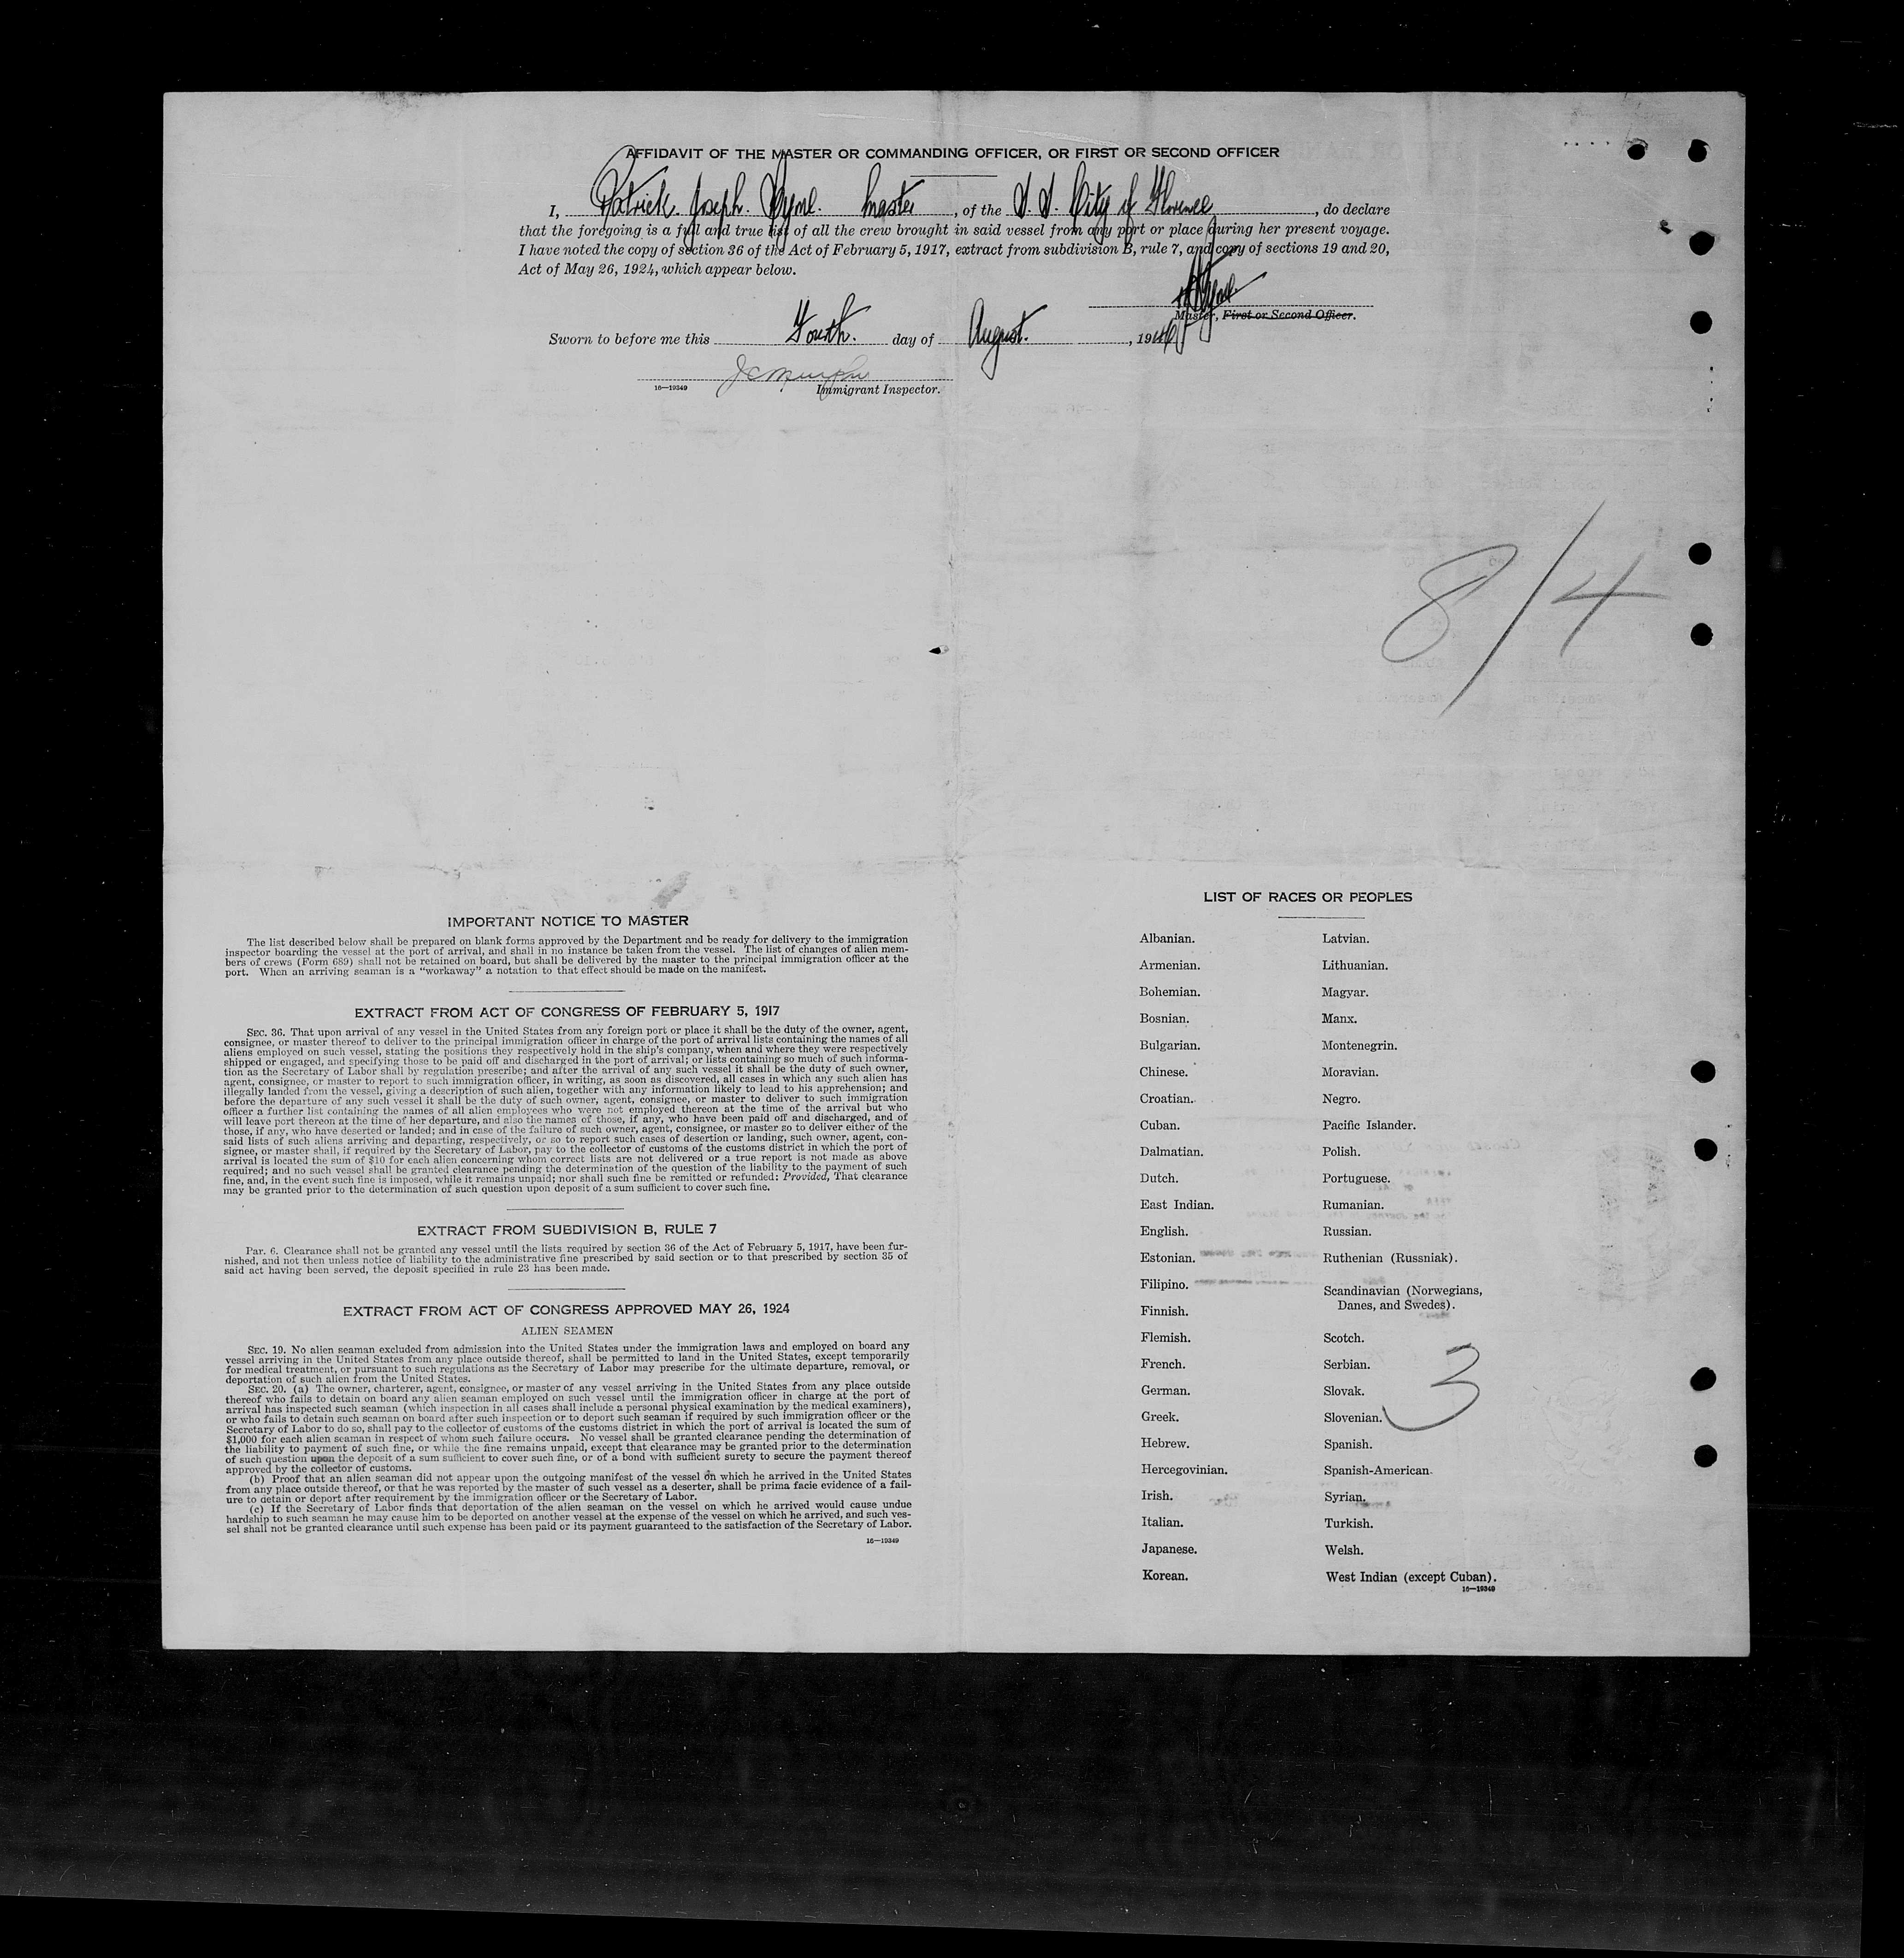 AFFIDAVIT OF THE MASTER OR COMMANDING OFFICER, OR FIRST OR SECOND OFFICER
I, Patrick Joseph Master, of the S.S. City of Florence, do declare
that the foregoing is a full and true list of all the crew brought in said vessel from any port or place during her present voyage.
I have noted the copy of section 36 of the Act of February 5, 1917, extract from subdivision B, rule 7, and copy of sections 19 and 20,
Act of May 26, 1924, which appear below.
Master, First or Second Officer.
Sworn to before me this Fourth. day of August. , 1946
J C Murphy
16—19349 Immigrant Inspector.
8/4
IMPORTANT NOTICE TO MASTER
The list described below shall be prepared on blank forms approved by the Department and be ready for delivery to the immigration
inspector boarding the vessel at the port of arrival, and shall in no instance be taken from the vessel. The list of changes of alien mem-
bers of crews (Form 689) shall not be retained on board, but shall be delivered by the master to the principal immigration officer at the
port. When an arriving seaman is a "workaway" a notation to that effect should be made on the manifest.
EXTRACT FROM ACT OF CONGRESS OF FEBRUARY 5, 1917
SEC. 36. That upon arrival of any vessel in the United States from any foreign port or place it shall be the duty of the owner, agent,
consignee, or master thereof to deliver to the principal immigration officer in charge of the port of arrival lists containing the names of all
aliens employed on such vessel, stating the positions they respectively hold in the ship's company, when and where they were respectively
shipped or engaged, and specifying those to be paid off and discharged in the port of arrival; or lists containing so much of such informa-
tion as the Secretary of Labor shall by regulation prescribe; and after the arrival of any such vessel it shall be the duty of such owner,
agent, consignee, or master to report to such immigration officer, in writing, as soon as discovered, all cases in which any such alien has
illegally landed from the vessel, giving a description of such alien, together with any information likely to lead to his apprehension; and
before the departure of any such vessel it shall be the duty of such owner, agent, consignee, or master to deliver to such immigration
officer a further list containing the names of all alien employees who were not employed thereon at the time of the arrival but who
will leave port thereon at the time of her departure, and also the names of those, if any, who have been paid off and discharged, and of
those, if any, who have deserted or landed; and in case of the failure of such owner, agent, consignee, or master so to deliver either of the
said lists of such aliens arriving and departing, respectively, or so to report such cases of desertion or landing, such owner, agent, con-
signee, or master shall, if required by the Secretary of Labor, pay to the collector of customs of the customs district in which the port of
arrival is located the sum of $10 for each alien concerning whom correct lists are not delivered or a true report is not made as above
required; and no such vessel shall be granted clearance pending the determination of the question of the liability to the payment of such
fine, and, in the event such fine is imposed, while it remains unpaid; nor shall such fine be remitted or refunded: Provided, That clearance
may be granted prior to the determination of such question upon deposit of a sum sufficient to cover such fine.
EXTRACT FROM SUBDIVISION B, RULE 7
Par. 6. Clearance shall not be granted any vessel until the lists required by section 36 of the Act of February 5, 1917, have been fur-
nished, and not then unless notice of liability to the administrative fine prescribed by said section or to that prescribed by section 35 of
said act having been served, the deposit specified in rule 23 has been made.
EXTRACT FROM ACT OF CONGRESS APPROVED MAY 26, 1924
ALIEN SEAMEN
SEC. 19. No alien seaman excluded from admission into the United States under the immigration laws and employed on board any
vessel arriving in the United States from any place outside thereof, shall be permitted to land in the United States, except temporarily
for medical treatment, or pursuant to such regulations as the Secretary of Labor may prescribe for the ultimate departure, removal, or
deportation of such alien from the United States.
SEC. 20. (a) The owner, charterer, agent, consignee, or master of any vessel arriving in the United States from any place outside
thereof who fails to detain on board any alien seaman employed on such vessel until the immigration officer in charge at the port of
arrival has inspected such seaman (which inspection in all cases shall include a personal physical examination by the medical examiners),
or who fails to detain such seaman on board after such inspection or to deport such seaman if required by such immigration officer or the
Secretary of Labor to do so, shall pay to the collector of customs of the customs district in which the port of arrival is located the sum of
$1,000 for each alien seaman in respect of whom such failure occurs. No vessel shall be granted clearance pending the determination of
the liability to payment of such fine, or while the fine remains unpaid, except that clearance may be granted prior to the determination
of such question upon the deposit of a sum sufficient to cover such fine, or of a bond with sufficient surety to secure the payment thereof
approved by the collector of customs.
(b) Proof that an alien seaman did not appear upon the outgoing manifest of the vessel on which he arrived in the United States
from any place outside thereof, or that he was reported by the master of such vessel as a deserter, shall be prima facie evidence of a fail-
ure to detain or deport after requirement by the immigration officer or the Secretary of Labor.
(c) If the Secretary of Labor finds that deportation of the alien seaman on the vessel on which he arrived would cause undue
hardship to such seaman he may cause him to be deported on another vessel at the expense of the vessel on which he arrived, and such ves-
sel shall not be granted clearance until such expense has been paid or its payment guaranteed to the satisfaction of the Secretary of Labor.
16—19349
LIST OF RACES OR PEOPLES
Albanian.
Armenian.
Bohemian.
Bosnian.
Bulgarian.
Chinese.
Croatian.
Cuban.
Dalmatian.
Dutch.
East Indian.
English.
Estonian.
Filipino.
Finnish.
Flemish.
French.
German.
Greek.
Hebrew.
Hercegovinian.
Irish.
Italian.
Japanese.
Korean.
Latvian.
Lithuanian.
Magyar.
Manx.
Montenegrin.
Moravian.
Negro.
Pacific Islander.
Polish.
Portuguese.
Rumanian.
Russian.
Ruthenian (Russniak).
Scandinavian (Norwegians,
Danes, and Swedes).
Scotch.
Serbian.
Slovak.
Slovenian.
Spanish.
Spanish-American.
Syrian.
Turkish.
Welsh.
West Indian (except Cuban).
16—19349
3